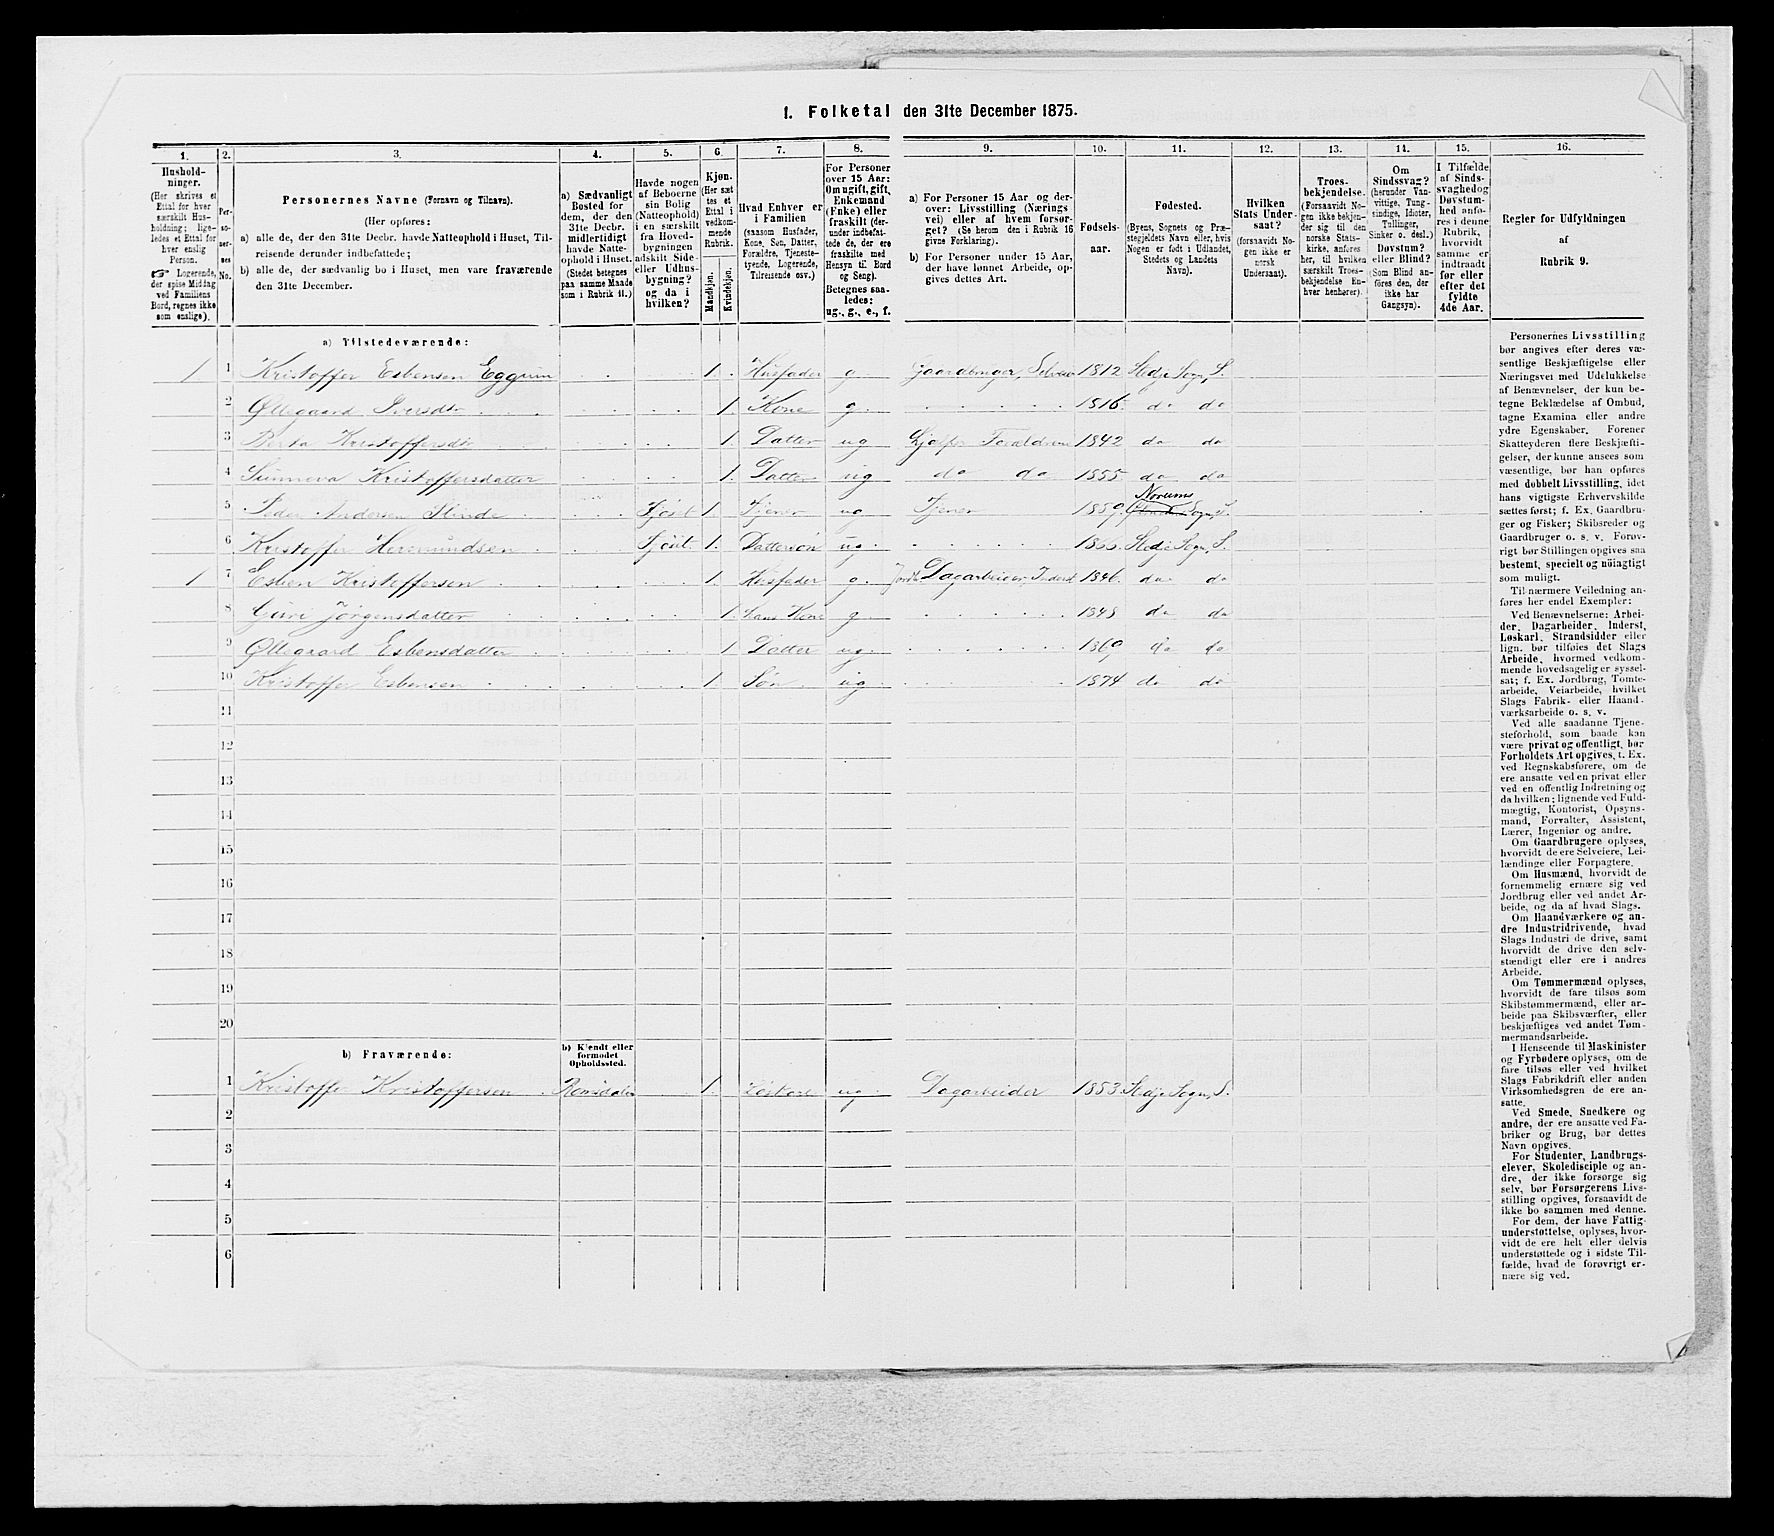 1. Folketal den 31te December 1875.
1. 2. 3. 4. 5. 6. 7. 8. 9. 10. 11. 12. 13. 14. 15. 16.
Hushold-
ninger.
(Her skrives et
Ettal for hver
særskilt Hus-
holdning; lige-
ledes et Ettal for
hver enslig
Person.
☞ Logerende,
der spise Middag
ved Familiens
Bord, regnes ikke
som enslige).
Per-
soner-
nes
No.
Personernes Navne (Fornavn og Tilnavn).
(Her opføres:
a) alle de, der den 31te Decbr. havde Natteophold i Huset, Til-
reisende derunder indbefattede;
b) alle de, der sædvanlig bo i Huset, men vare fraværende
den 31te December.
a) Sædvanligt
Bosted for
dem, der den
31te Decbr.
midlertidigt
havde Natte-
ophold i Huset.
(Stedet betegnes
paa samme Maade
som i Rubrik 11.)
Havde nogen
af Beboerne
sin Bolig
(Natteophold)
i en særskilt
fra Hoved-
bygningen
adskilt Side-
eller Udhus-
bygning?
og da i
hvilken?
Kjøn.
(Her sæt-
tes et
Ettal i
vedkom-
mende
Rubrik.
Mandkjøn.
Kvindekjøn.
Hvad Enhver er
i Familien
(saasom Husfader,
Kone, Søn, Datter,
Forældre, Tjeneste-
tyende, Logerende,
Tilreisende osv.)
For Personer
over 15 Aar:
Om ugift, gift,
Enkemand
(Enke) eller
fraskilt (der-
under indbefat-
tede de, der ere
fraskilte med
Hensyn til Bord
og Seng).
Betegnes saa-
ledes:
ug., g., e., f.
a) For Personer 15 Aar og der-
over: Livsstilling (Nærings
vei) eller af hvem forsør-
get? (Se herom den i Rubrik 16
givne Forklaring).
b) For Personer under 15 Aar,
der have lønnet Arbeide, op-
gives dettes Art.
Fødsels-
aar.
Fødested.
(Byens, Sognets og Præ-
stegjeldets Navn eller, hvis
Nogen er født i Udlandet,
Stedets og Landets
Navn).
Hvilken
Stats Under-
saat?
(forsaavidt No-
gen ikke er
norsk
Undersaat).
Troes-
bekjendelse.
(Forsaavidt No-
gen ikke bekjen-
der sig til den
norske Stats-
kirke, anføres
her, til hvilken
særskilt Troes-
bekjendelse En-
hver henhører).
Om
Sindssvag?
(herunder Van-
vittige, Tung-
sindige, Idioter,
Tullinger,
Sinker o. desl.)
Døvstum?
eller Blind?
(Som Blind an-
føres den, der
ikke har
Gangsyn).
I Tilfælde
af Sinds-
svaghed og
Døvstum-
hed anfø-
res i denne
Rubrik,
hvorvidt
samme er
indtraadt
før eller
efter det
fyldte
4de Aar.
Regler for Udfyldningen
af
Rubrik 9.
a) Tilstedeværende:
1 1 Kristoffer Esbensen Eggum 1. Husfader g. Gaardbruger, Selveier 1812 Stedje Sogn, S.
2 Øllegaard Iversdtr 1. Kone g. 1816 do do
3 Berta Kristoffersdtr 1. Datter ug Hjælper Forældrene 1842 do do
4 Sunneva Kristoffersdatter 1. Datter ug do do 1855 do do
5 Peder Andersen Slinde Fjöst 1. Tjener ug Tjener 1859 Norums Sogn, S.
6 Kristoffer Hermundsen Fjöst 1. Dattersøn ug. 1866 Stedje Sogn, S.
1 7 Esben Kristoffersen 1. Husfader g. Jordb. Dagarbeider, Inderst 1846 do do
8 Guri Jørgensdatter 1. Hans Kone g. 1848 do do
9 Øllegaard Esbensdatter 1 Datter ug. 1869 do do
10 Kristoffer Esbensen 1. Søn ug. 1874 do do
11
12
13
14
15
16
17
18
19
20
b) Fraværende:
b) Kjendt eller
formodet
Opholdssted.
1 Kristoffer Kristoffersen Romsdalen 1. ug Dagarbeider 1853 Stedje Sogn, S.
2
3
4
5
6
Personernes Livsstilling
bør angives efter deres væ-
sentlige Beskjæftigelse eller
Næringsvei med Udelukkelse
af Benævnelser, der kun be-
tegne Beklædelse af Ombud,
tagne Examina eller andre
ydre Egenskaber. Forener
Skatteyderen flere Beskjæfti-
gelser, der kunne ansees som
væsentlige, bør han opføres
med dobbelt Livsstilling, idet
hans vigtigste Erhvervskilde
sættes først; f. Ex. Gaardbru-
ger og Fisker; Skibsreder og
Gaardbruger o. s. v. Forøv-
rigt bør Stillingen opgives saa
bestemt, specielt og nøiagtigt
som muligt.
Til nærmere Veiledning an-
føres her endel Exempler:
Ved Benævnelserne: Arbei-
der, Dagarbeider, Inderst,
Løskarl, Strandsidder eller
lign. bør tilføies det Slags
Arbeide, hvormed vedkom-
mende hovedsagelig er syssel-
sat; f. Ex. Jordbrug, Tomte-
arbeide, Veiarbeide, hvilket
Slags Fabrik- eller Haand-
værksarbeide o. s. v.
Ved alle saadanne Tjene-
steforhold, som baade kan
være privat og offentligt, bør
Forholdets Art opgives, t. Ex.
ved Regnskabsførere, om de
ere ansatte ved en privat eller
ved en offentlig Indretning og
da hvilken; lignende ved Fuld-
mægtig, Kontorist, Opsyns-
mand, Forvalter, Assistent,
Lærer, Ingeniør og andre.
Om Gaardbrugere oplyses,
hvorvidt de ere Selveiere, Lei-
lændinge eller Forpagtere.
Om Husmænd, hvorvidt de
fornemmelig ernære sig ved
Jordbrug eller ved andet Ar-
beide, og da af hvad Slags.
Om Haandværkere og an-
dre Industridrivende, hvad
Slags Industri de drive, samt
hvorvidt de drive den selv-
stændigt eller ere i andres
Arbeide.
Om Tømmermænd oplyses,
hvorvidt de fare tilsøs som
Skibstømmermænd, eller ar-
beide paa Skibsværfter, eller
beskjæftiges ved andet Tøm-
mermandsarbeide.
I Henseende til Maskinister
og Fyrbødere oplyses, om de
fare tilsøs eller ved hvilket
Slags Fabrikdrift eller anden
Virksomhedsgren de ere an-
satte.
Ved Smede, Snedkere og
andre, der ere ansatte ved Fa-
briker og Brug, bør dettes
Navn opgives.
For Studenter, Landbrugs-
elever, Skoledisciple og an-
dre, der ikke forsørge sig
selv, bør Forsørgerens Livs-
stilling opgives, forsaavidt de
ikke bo sammen med denne.
For dem, der have Fattig-
understøttelse, oplyses, hvor-
vidt de ere helt eller delvis
understøttede og i sidste Til-
fælde, hvad de forøvrigt er-
nære sig ved.